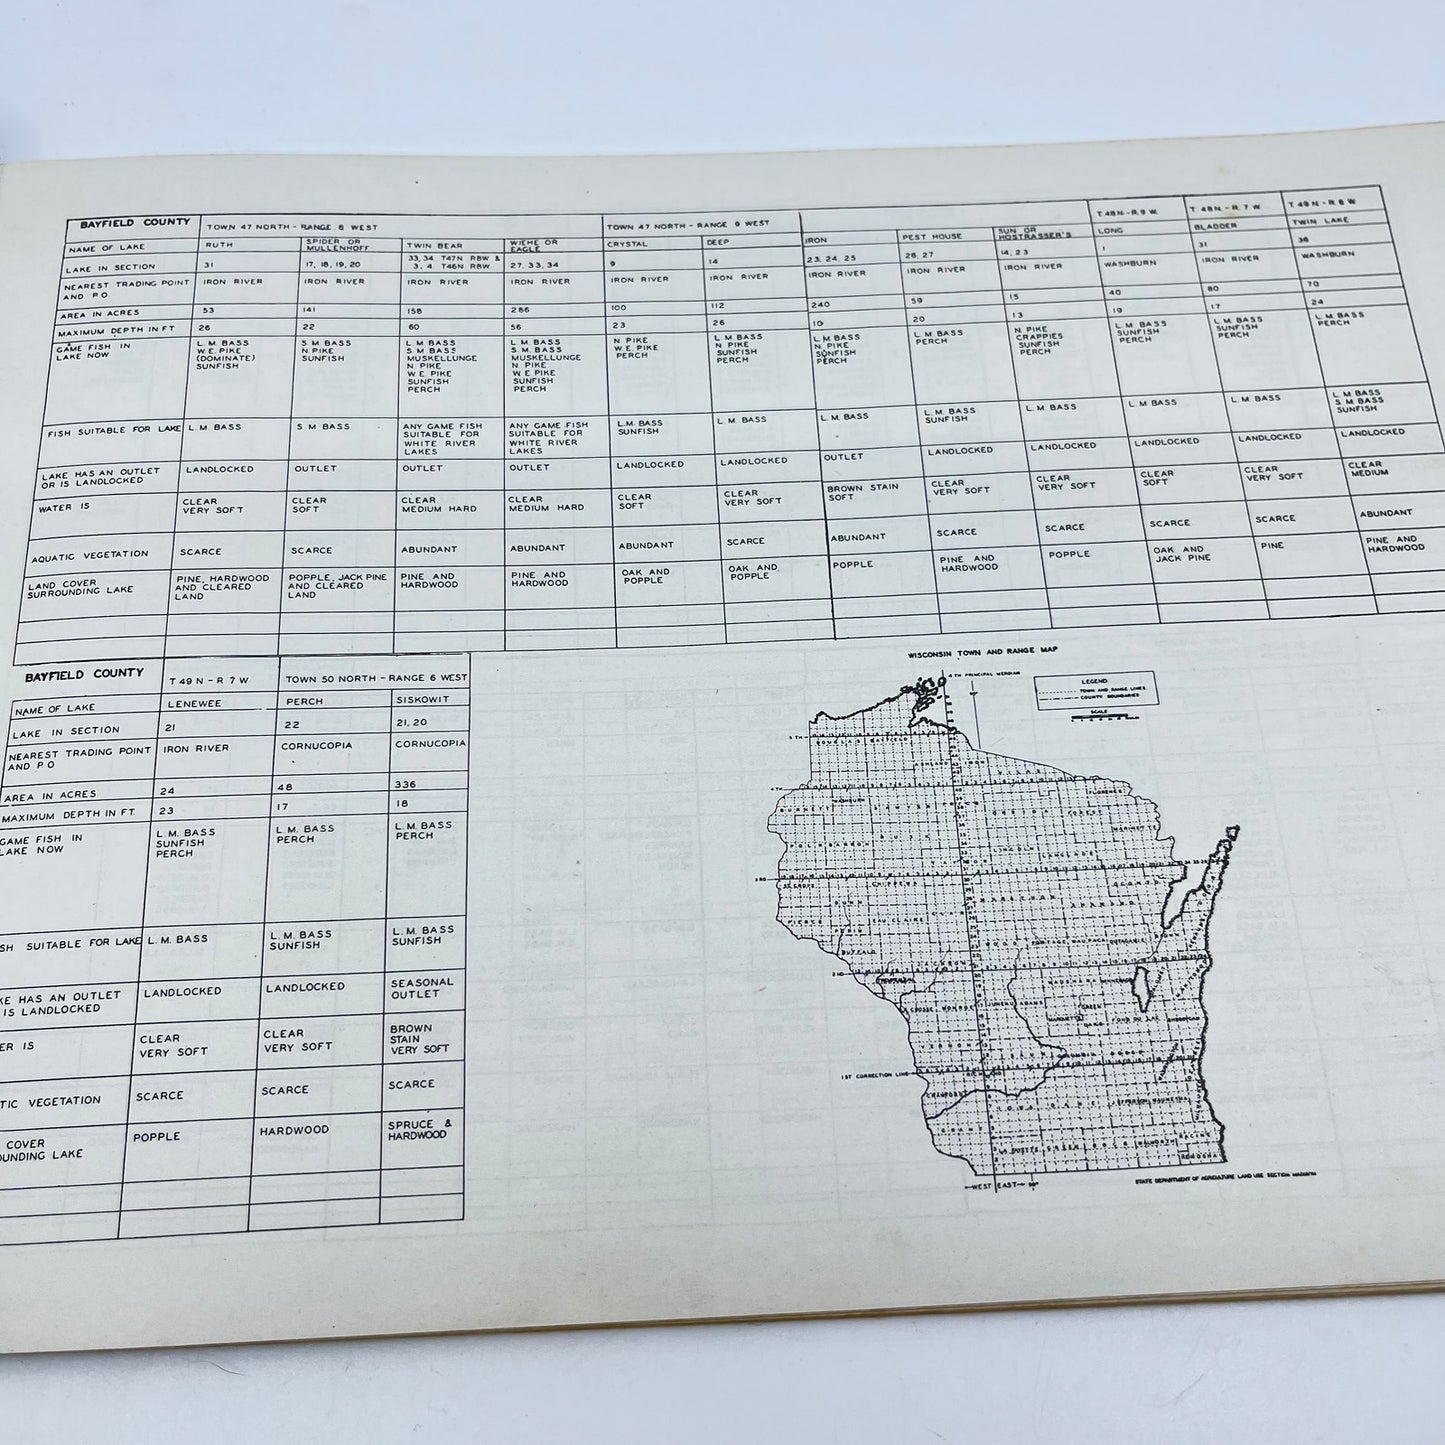 BAYFIELD COUNTY TOWN 47 NORTH - RANGE 8 WEST TOWN 47 NORTH - RANGE 9 WEST T. 48 N. - R. 9 W. T. 48 N. - R. 7 W. T. 49 N. - R. 8 W.
NAME OF LAKE RUTH SPIDER OR MULLENHOFF TWIN BEAR WIEHE OR EAGLE CRYSTAL DEEP IRON PEST HOUSE SUN OR HOSTRASSER'S LONG BLADDER TWIN LAKE
LAKE IN SECTION 31 17, 18, 19, 20 33, 34 T47N R8W & 3, 4 T46N R8W 27, 33, 34 9 14 23, 24, 25 26, 27 14, 23 1 31 36
NEAREST TRADING POINT AND P.O. IRON RIVER IRON RIVER IRON RIVER IRON RIVER IRON RIVER IRON RIVER IRON RIVER IRON RIVER IRON RIVER WASHBURN IRON RIVER WASHBURN
AREA IN ACRES 53 141 158 286 100 112 240 59 15 40 80 70
MAXIMUM DEPTH IN FT 26 22 60 56 23 26 10 20 13 19 17 24
GAME FISH IN LAKE NOW L. M. BASS W. E. PIKE (DOMINATE) SUNFISH S M BASS N PIKE SUNFISH L M BASS S M BASS MUSKELLUNGE N PIKE W E PIKE SUNFISH PERCH L M BASS S. M BASS MUSKELLUNGE N PIKE W E PIKE SUNFISH PERCH N PIKE W E. PIKE PERCH L M BASS N PIKE SUNFISH PERCH L M BASS N. PIKE SUNFISH PERCH L M BASS PERCH N PIKE CRAPPIES SUNFISH PERCH L M BASS SUNFISH PERCH L M BASS SUNFISH PERCH L M BASS PERCH
FISH SUITABLE FOR LAKE L M BASS S M BASS ANY GAME FISH SUITABLE FOR WHITE RIVER LAKES ANY GAME FISH SUITABLE FOR WHITE RIVER LAKES L.M. BASS SUNFISH L M BASS L M BASS L M BASS SUNFISH L M BASS L M BASS L M BASS L M BASS S M BASS SUNFISH
LAKE HAS AN OUTLET OR IS LANDLOCKED LANDLOCKED OUTLET OUTLET OUTLET LANDLOCKED LANDLOCKED OUTLET LANDLOCKED LANDLOCKED LANDLOCKED LANDLOCKED LANDLOCKED
WATER IS CLEAR VERY SOFT CLEAR SOFT CLEAR MEDIUM HARD CLEAR MEDIUM HARD CLEAR SOFT CLEAR VERY SOFT BROWN STAIN SOFT CLEAR VERY SOFT CLEAR VERY SOFT CLEAR SOFT CLEAR VERY SOFT CLEAR MEDIUM
AQUATIC VEGETATION SCARCE SCARCE ABUNDANT ABUNDANT ABUNDANT SCARCE ABUNDANT SCARCE SCARCE SCARCE SCARCE ABUNDANT
LAND COVER SURROUNDING LAKE PINE, HARDWOOD AND CLEARED LAND POPPLE, JACK PINE AND CLEARED LAND PINE AND HARDWOOD PINE AND HARDWOOD OAK AND POPPLE OAK AND POPPLE POPPLE PINE AND HARDWOOD POPPLE OAK AND JACK PINE PINE PINE AND HARDWOOD
BAYFIELD COUNTY T 49 N - R 7 W TOWN 50 NORTH - RANGE 6 WEST
NAME OF LAKE LENEWEE PERCH SISKOWIT
LAKE IN SECTION 21 22 21, 20
NEAREST TRADING POINT AND P O IRON RIVER CORNUCOPIA CORNUCOPIA
AREA IN ACRES 24 48 336
MAXIMUM DEPTH IN FT. 23 17 18
GAME FISH IN LAKE NOW L. M. BASS SUNFISH PERCH L. M. BASS PERCH L. M. BASS PERCH
SH SUITABLE FOR LAKE L. M. BASS L. M. BASS SUNFISH L. M. BASS SUNFISH
KE HAS AN OUTLET IS LANDLOCKED LANDLOCKED LANDLOCKED SEASONAL OUTLET
ER IS CLEAR VERY SOFT CLEAR VERY SOFT BROWN STAIN VERY SOFT
TIC VEGETATION SCARCE SCARCE SCARCE
COVER OUNDING LAKE POPPLE HARDWOOD SPRUCE & HARDWOOD
WISCONSIN TOWN AND RANGE MAP
4 TH PRINCIPAL MERIDIAN
LEGEND
TOWN AND RANGE LINES
COUNTY BOUNDARIES
SCALE
5 TH
DOUGLAS BAYFIELD
ASHLAND IRON
VILAS
4 TH
BURNETT WASHBURN
FLORENCE
FOREST
MARINETTE
RUSK
POLK BARRON
LINCOLN
LANGLADE
3 RD
ST. CROIX CHIPPEWA
MARATHON
DUNN
PIERCE EAU CLAIRE
SHAWANO
BUFFALO
WOOD PORTAGE WAUPACA OUTAGAMIE BROWN
2 ND
JACKSON
LA CROSSE MONROE JUNEAU ADAMS
FOND DU LAC SHEBOYGAN
VERNON
COLUMBIA DODGE
1ST CORRECTION LINE
CRAWFORD
IOWA DANE JEFFERSON WAUKESHA
GRANT
GREEN ROCK WALWORTH RACINE
KENOSHA
WEST EAST
STATE DEPARTMENT OF AGRICULTURE LAND USE SECTION MADISON